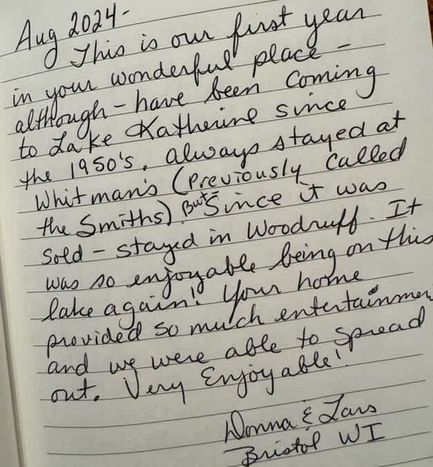 Aug 2024-
This is our first year
in your wonderful place -
although - have been coming
to Lake Katherine since
the 1950's. Always stayed at
Whitman's (Previously Called
the Smiths) But Since it was
Sold - stayed in Woodruff. It
was so enjoyable being on this
lake again! Your home
provided so much entertainmen
and we were able to spread
out. Very Enjoyable!
Donna & Lars
Bristol WI